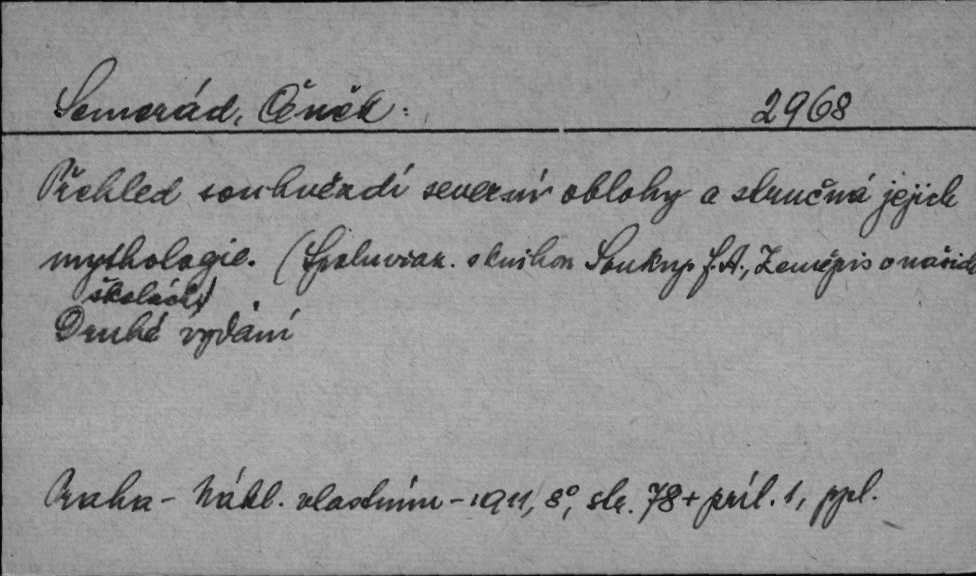 Semerád, Čeněk: 2968
Přehled souhvězdí severní oblohy a stručná jejich
mythologie. (Spoluviaz. s knihou Soukup J. A., Zeměpis o našich
školách)
Druhé vydání
Praha - Nákl. vlastním - 1911, 8°, str. 78 + príl. 1, ppl.